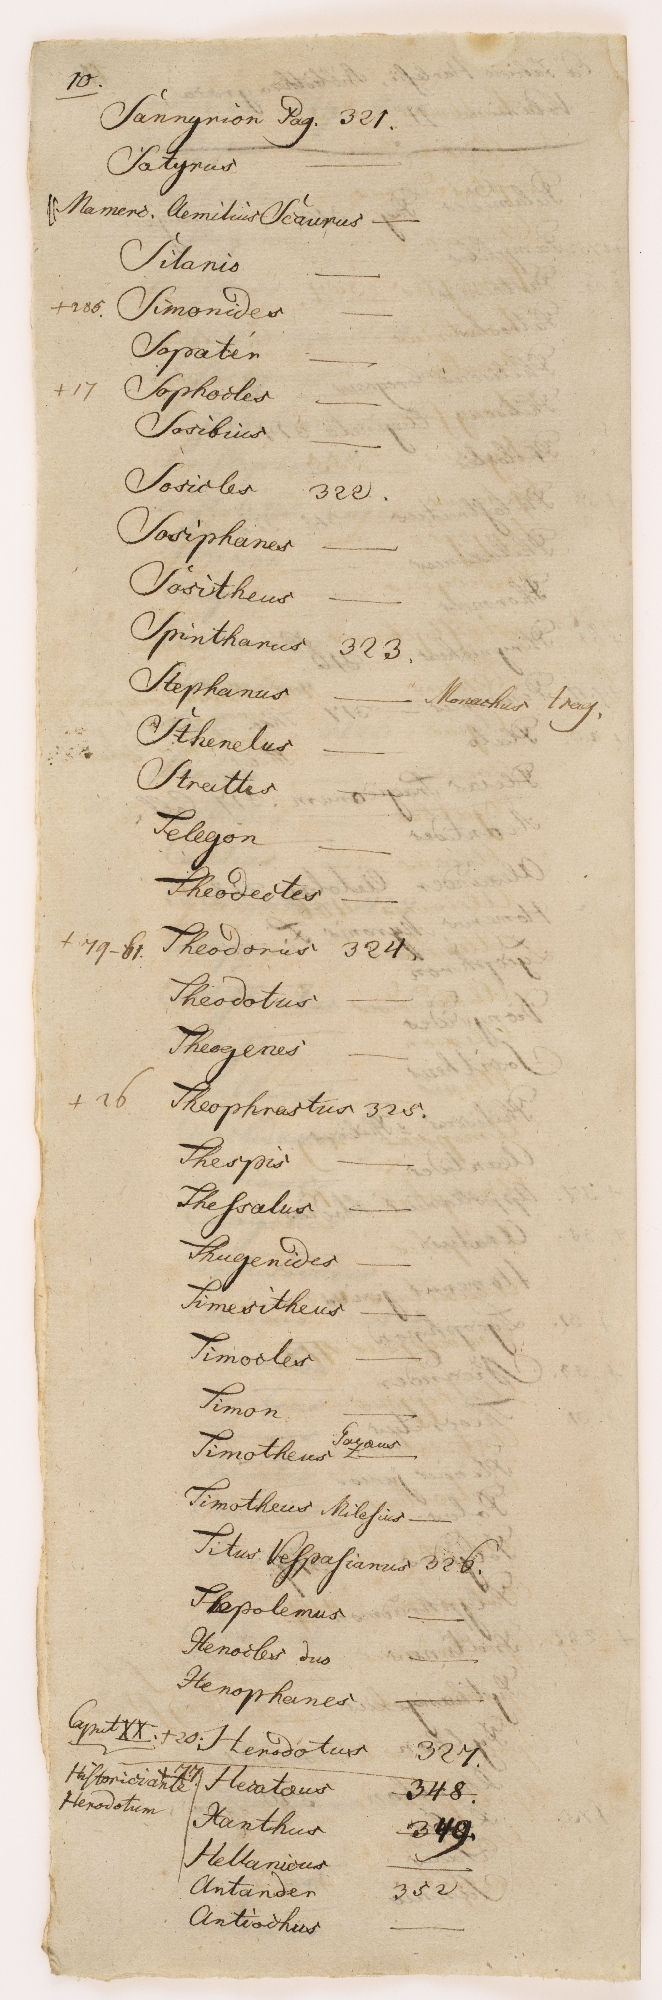 10.
Sannyrion Pag. 321.
Satyrus —
Mamerc. Aemilius Scaurus —
Silanio —
+205. Simonides —
Sopater —
+17 Sophocles —
Sosibius —
Sosicles 322.
Sosiphanes —
Sositheus —
Spintharus 323.
Stephanus — Monachus trag.
Sthenelus —
Strattes —
Telegon —
Theodectes —
+79-81. Theodorus 324.
Theodotus —
Theogenes —
+26 Theophrastus 325.
Thespis —
Thessalus —
Thugenides —
Timesitheus —
Timocles —
Timon —
Timotheus Gazaeus —
Timotheus Milesius —
Titus Vespasianus 326.
Tlepolemus —
Xenocles duo —
Xenophanes —
Caput XX. +20. Herodotus 327.
Historici ante +77. Hecataeus 348.
Herodotum Xanthus 349.
Hellanicus —
Antander 352
Antiochus —